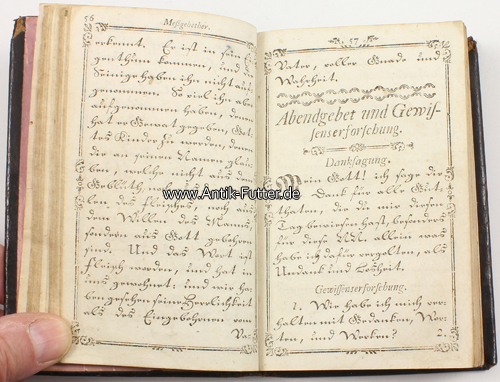 56
Meßgebether.
erkennt. Er ist in sein Ei-
genthum kommen, und die
Seinige haben ihn nicht auf-
genommen. So viel ihn aber
aufgenommen haben, denen
hat er Gewalt gegeben, Got-
tes Kinder zu werden, denen
die an seinen Namen glau-
ben, welche nicht aus dem
Geblüth,
des Fleisches, noch aus
dem Willen des Manns,
sondern aus Gott gebohren
sind. Und das Wort ist
Fleisch worden, und hat in
uns gewohnet: und wir ha-
ben gesehen seine Herrlichkeit
als des Eingebohrnen vom
Va-
57
Vater, voller Gnade und
Wahrheit.
Abendgebet und Gewis-
senserforschung.
Danksagung.
Mein Gott! ich sage dir
Dank für alle Gut-
thaten, die du mir diesen
Tag bewiesen hast, besonders
für diese
habe ich dafür vergolten, als
Undank und Bosheit.
Gewissenserforschung.
1. Wie habe ich mich ver-
halten mit Gedanken, Wor-
ten, und Werken?
2.
www.Antik-Futter.de